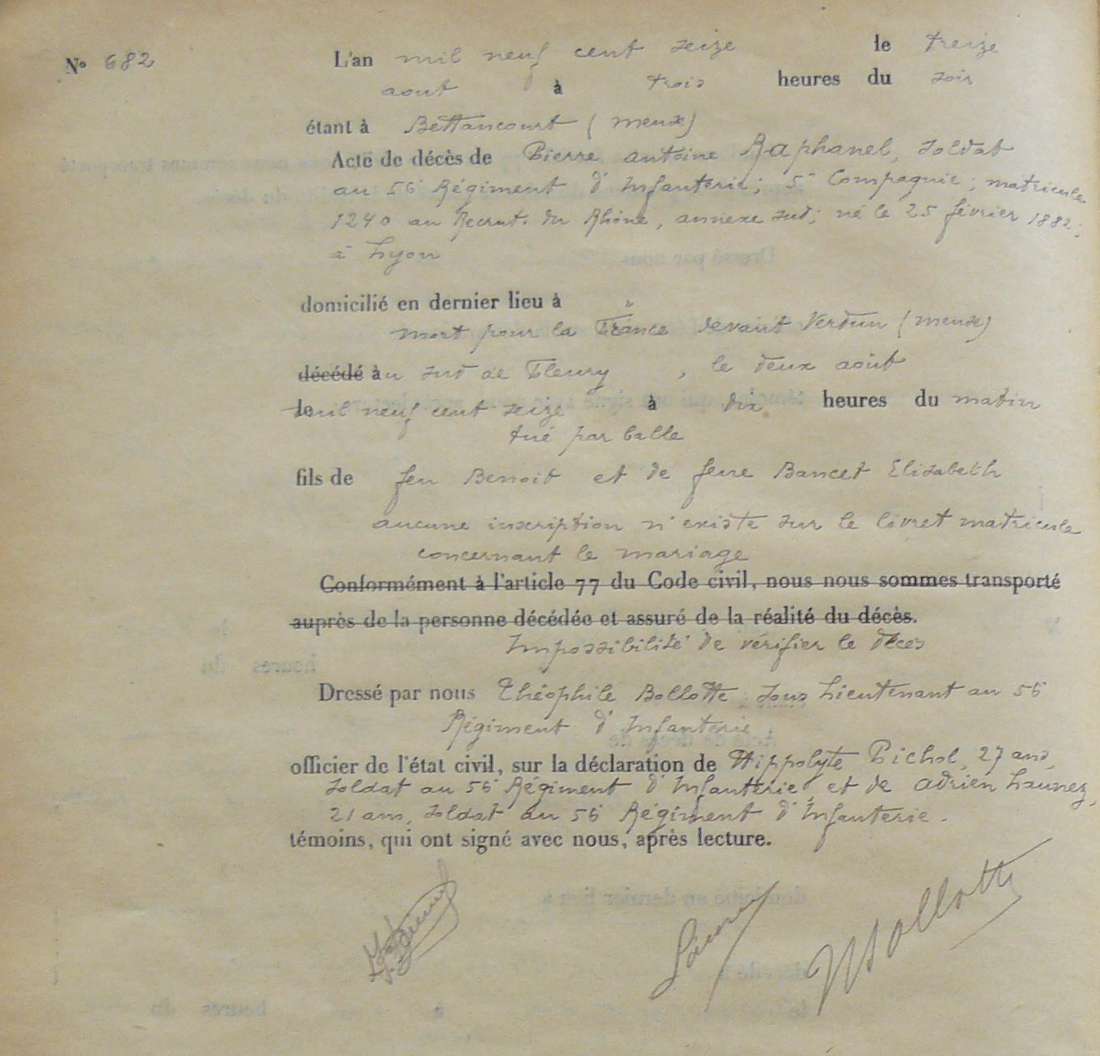 N° 682
L'an mil neuf cent seize le treize
aout à trois heures du soir
étant à Bettancourt (meuse)
Acte de décès de Pierre antoine Raphanel, soldat
au 56e Régiment d'Infanterie; 5e Compagnie; matricule
1240 au Recrut. du Rhône, annexe sud; né le 25 février 1882;
à Lyon
domicilié en dernier lieu à "
mort pour la France devant Verdun (meuse)
décédé au sud de Fleury, le deux août
le mil neuf cent seize à dix heures du matin
tué par balle
fils de feu Benoit et de feue Bancet Elisabeth
aucune inscription n'existe sur le livret matricule
concernant le mariage
Conformément à l'article 77 du Code civil, nous nous sommes transporté
auprès de la personne décédée et assuré de la réalité du décès.
Impossibilité de vérifier le décès
Dressé par nous Théophile Bollotte sous Lieutenant au 56e
Régiment d'Infanterie
officier de l'état civil, sur la déclaration de Hippolyte Pichol, 27 ans,
soldat au 56e Régiment d'Infanterie et de adrien Launez,
21 ans, soldat au 56e Régiment d'Infanterie.
témoins, qui ont signé avec nous, après lecture.
Bollotte